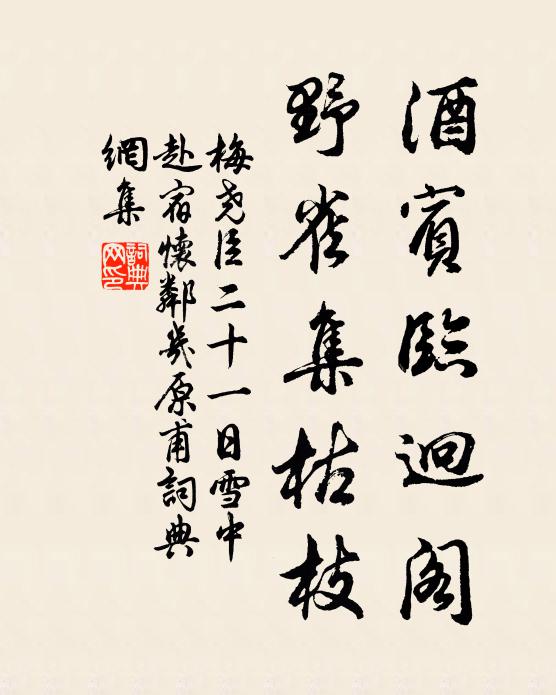 酒賓臨迥閣
野雀集枯枝
梅堯臣二十一日雪中
赴宿懷鄰幾原甫詞典
網集
詞典網印